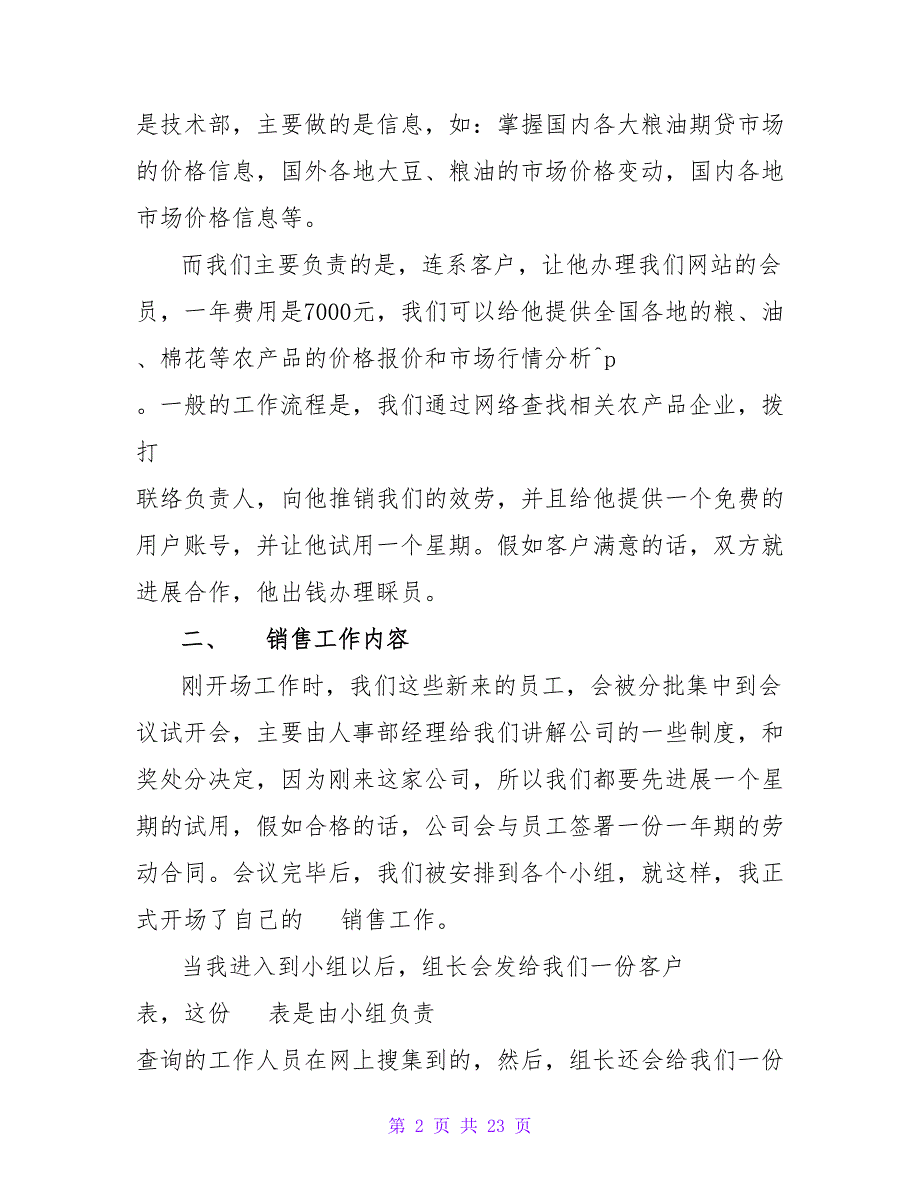 是技术部，主要做的是信息，如：掌握国内各大粮油期贷市场
的价格信息，国外各地大豆、粮油的市场价格变动，国内各地
市场价格信息等。
而我们主要负责的是，连系客户，让他办理我们网站的会
员，一年费用是7000元，我们可以给他提供全国各地的粮、油
、棉花等农产品的价格报价和市场行情分析^p
。一般的工作流程是，我们通过网络查找相关农产品企业，拨
打
联络负责人，向他推销我们的效劳，并且给他提供一个免费的
用户账号，并让他试用一个星期。假如客户满意的话，双方就
进展合作，他出钱办理睬员。
二、 销售工作内容
刚开场工作时，我们这些新来的员工，会被分批集中到会
议试开会，主要由人事部经理给我们讲解公司的一些制度，和
奖处分决定，因为刚来这家公司，所以我们都要先进展一个星
期的试用，假如合格的话，公司会与员工签署一份一年期的劳
动合同。会议完毕后，我们被安排到各个小组，就这样，我正
式开场了自己的 销售工作。
当我进入到小组以后，组长会发给我们一份客户
表，这份 表是由小组负责
查询的工作人员在网上搜集到的，然后，组长还会给我们一份
第 2 页 共 23 页